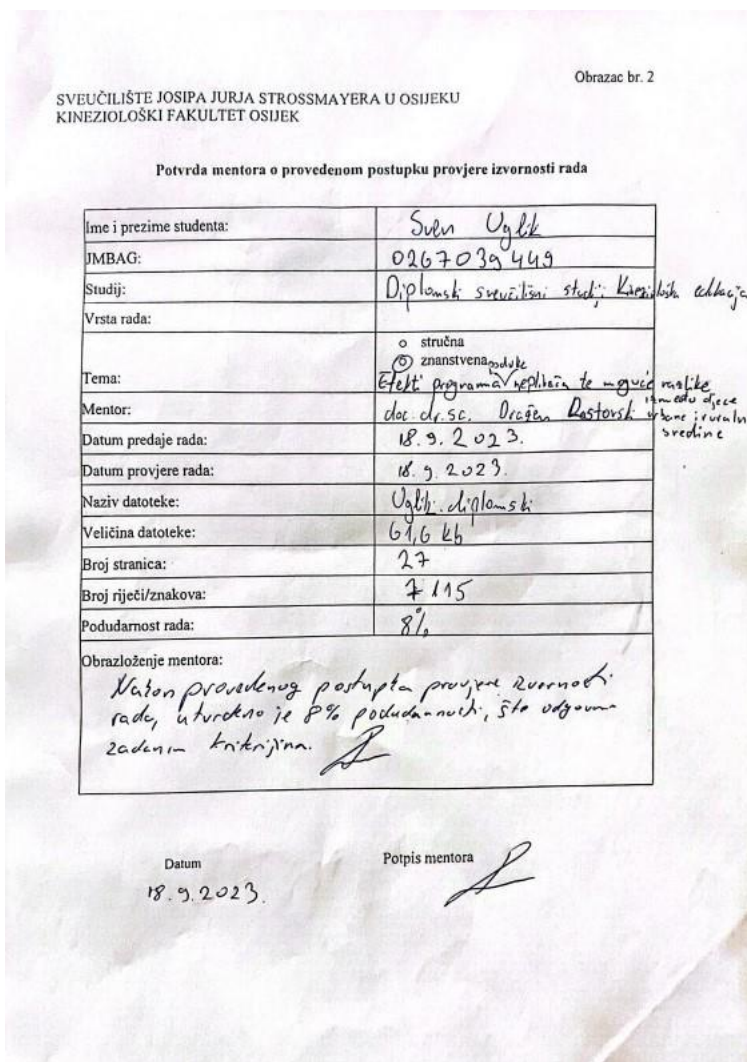 Obrazac br. 2
SVEUČILIŠTE JOSIPA JURJA STROSSMAYERA U OSIJEKU
KINEZIOLOŠKI FAKULTET OSIJEK
Potvrda mentora o provedenom postupku provjere izvornosti rada
Ime i prezime studenta: Sven Uglik
JMBAG: 0267039449
Studij: Diplomski sveučilišni studij Kineziološka edukacija
Vrsta rada:
o stručna
o znanstvena
poduke
Tema: Efekti programa neplivača te moguće razlike
između djece
urbane i ruralne
sredine
Mentor: doc. dr. sc. Dražen Rastovski
Datum predaje rada: 18. 9. 2023.
Datum provjere rada: 18. 9. 2023.
Naziv datoteke: Uglik diplomski
Veličina datoteke: 61,6 kb
Broj stranica: 27
Broj riječi/znakova: 7115
Podudarnost rada: 8%
Obrazloženje mentora:
Nakon provedenog postupka provjere izvornosti
rada, utvrđeno je 8% podudarnosti, što odgovara
zadanim kriterijima.
Datum Potpis mentora
18. 9. 2023.